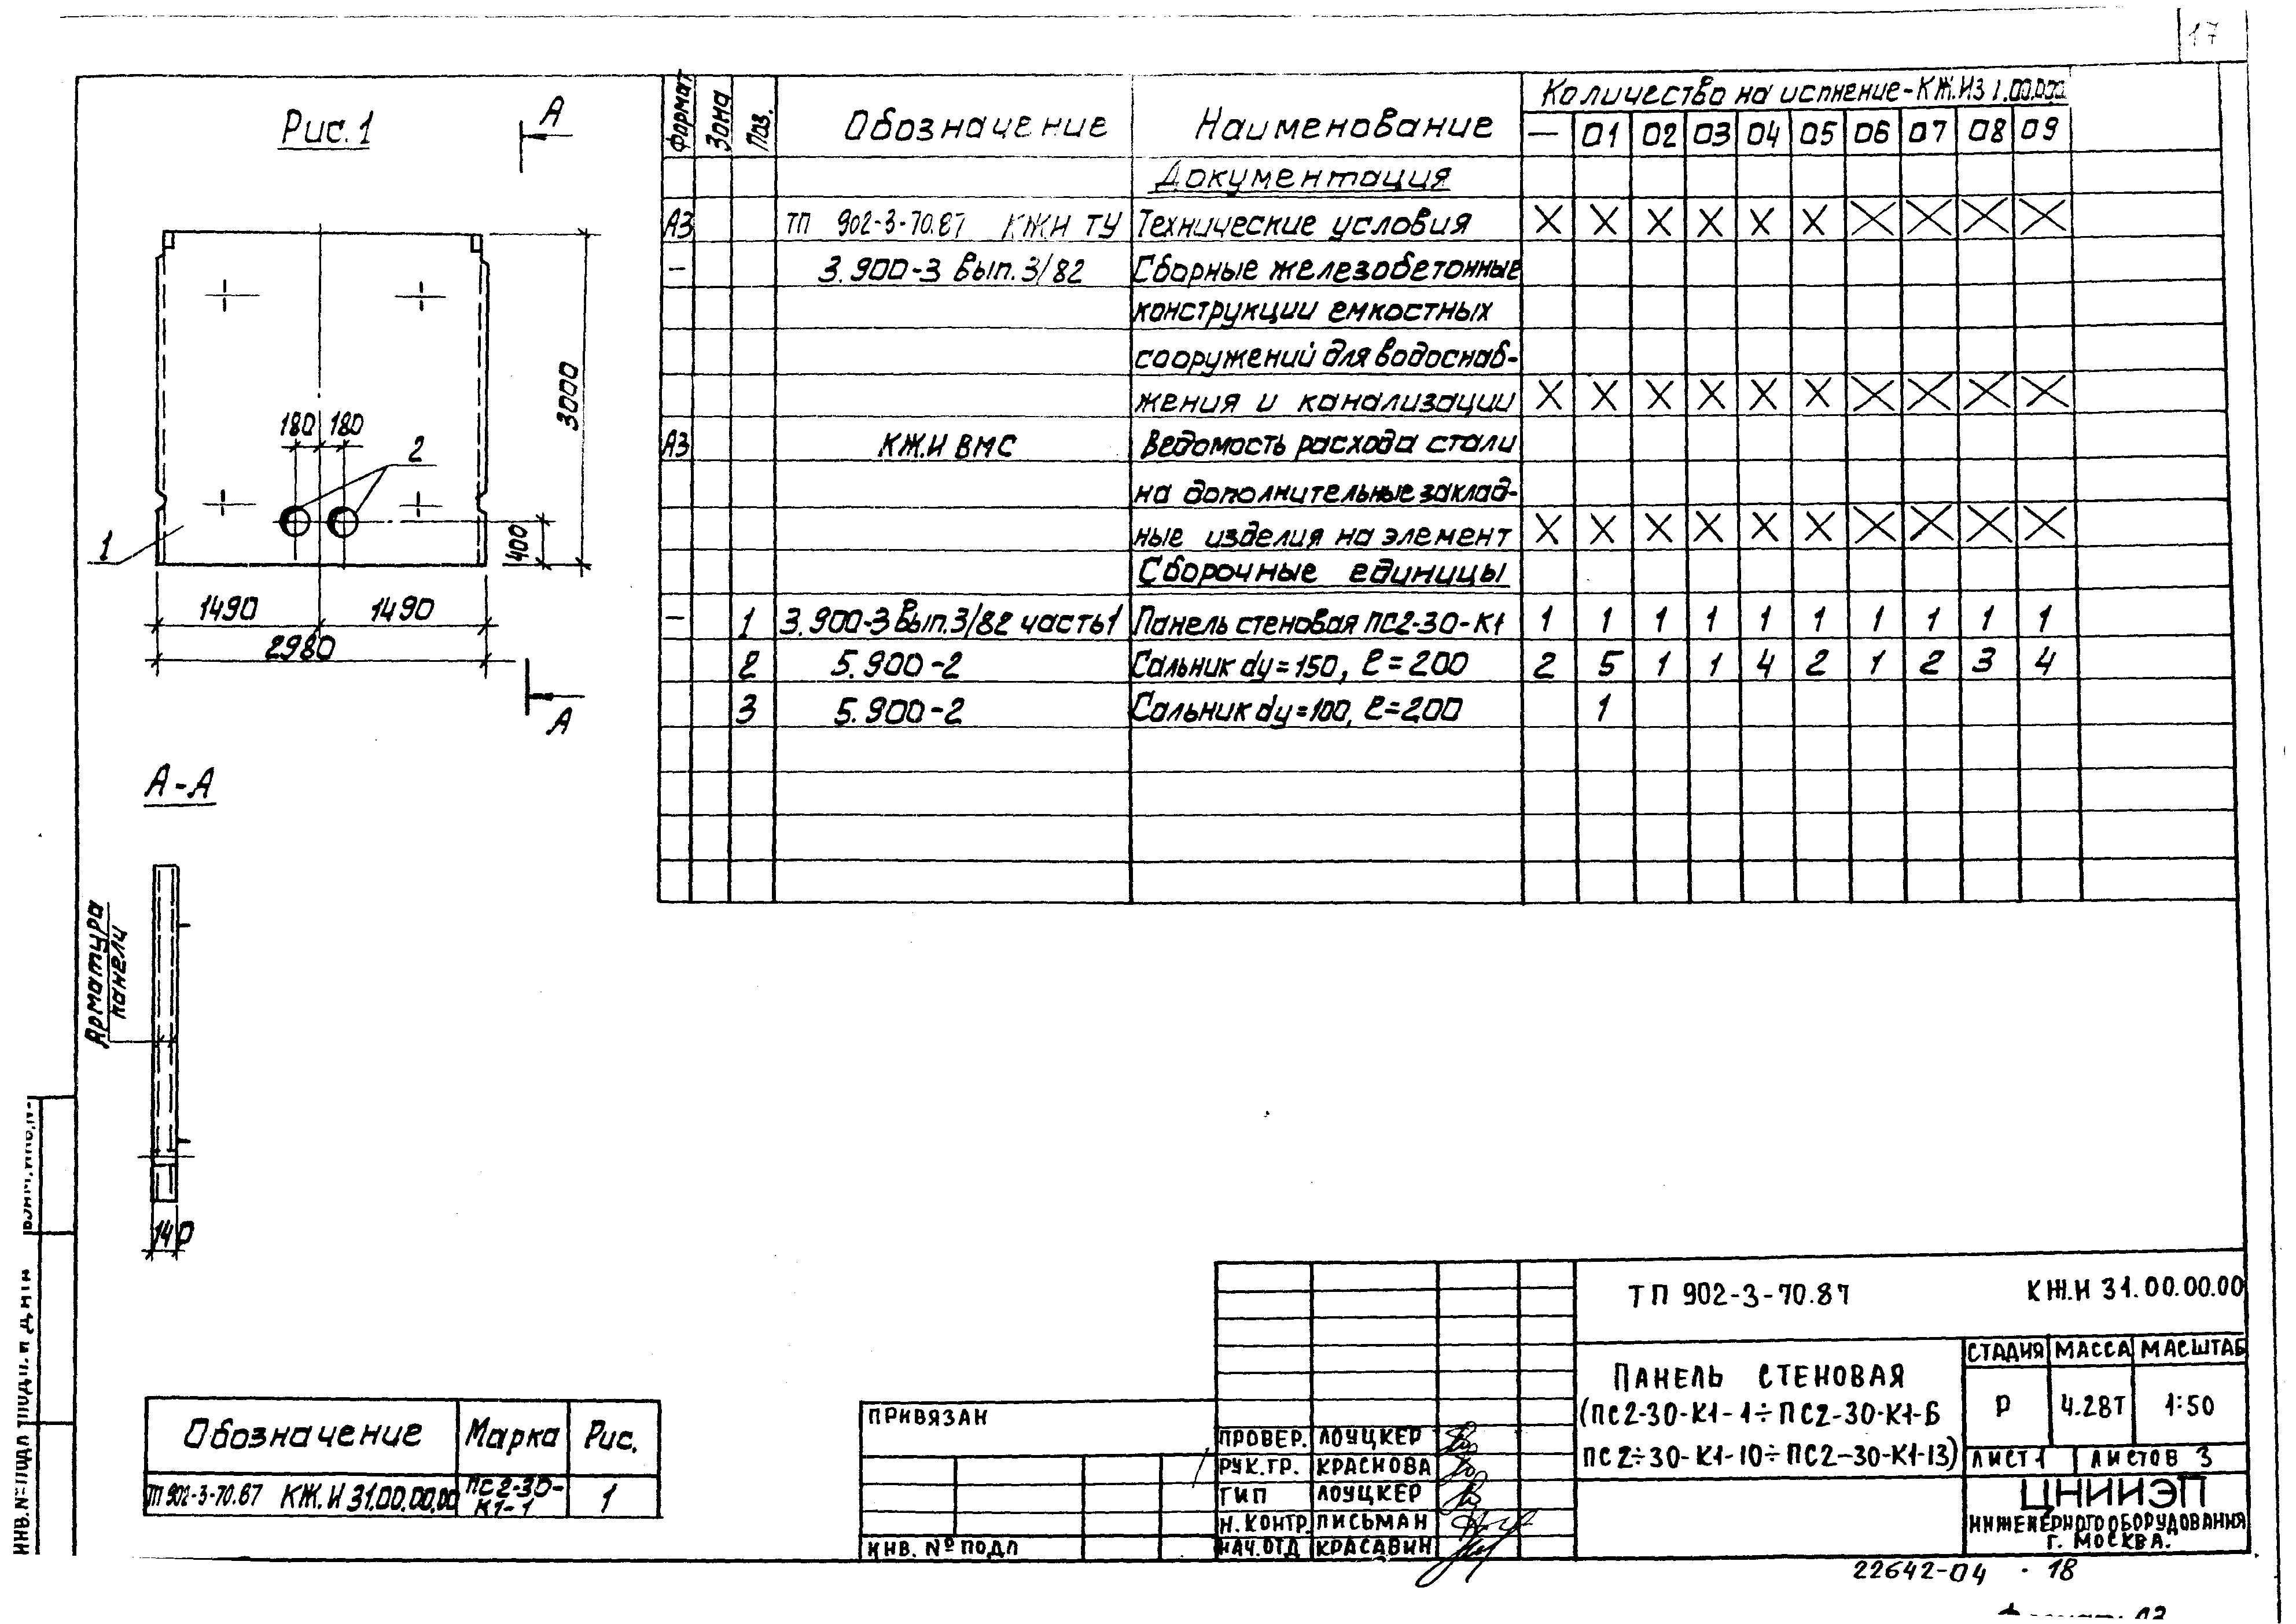 17
Рис. 1
А
3000
180 180
2
1
400
1490 1490
2980
А
А-А
Арматура
панели
140
Формат Зона Поз. Обозначение Наименование Количество на испнение-КЖ.И31.00.00.00
— 01 02 03 04 05 06 07 08 09
Документация
А3 ТП 902-3-70.87 КЖИ ТУ Технические условия X X X X X X X X X X
— 3.900-3 Вып. 3/82 Сборные железобетонные
конструкции емкостных
сооружений для водоснаб-
жения и канализации X X X X X X X X X X
А3 КЖ.И ВМС Ведомость расхода стали
на дополнительные заклад-
ные изделия на элемент X X X X X X X X X X
Сборочные единицы
— 1 3.900-3 Вып.3/82 часть1 Панель стеновая ПС2-30-К1 1 1 1 1 1 1 1 1 1 1
2 5.900-2 Сальник dу=150, ℓ=200 2 5 1 1 4 2 1 2 3 4
3 5.900-2 Сальник dу=100, ℓ=200 1
Обозначение Марка Рис.
ТП 902-3-70.87 КЖ.И 31.00.00.00 ПС2-30-
К1-1 1
ПРИВЯЗАН
ИНВ. № ПОДЛ
ПРОВЕР. ЛОУЦКЕР
РУК.ГР. КРАСНОВА
ГИП ЛОУЦКЕР
Н. КОНТР. ПИСЬМАН
НАЧ.ОТД КРАСАВИН
ТП 902-3-70.87 КЖ.И 31.00.00.00
ПАНЕЛЬ СТЕНОВАЯ
(ПС2-30-К1-1÷ПС2-30-К1-6
ПС2÷30-К1-10÷ПС2-30-К1-13)
СТАДИЯ МАССА МАСШТАБ
Р 4.28Т 1:50
ЛИСТ 1 ЛИСТОВ 3
ЦНИИЭП
ИНЖЕНЕРНОГО ОБОРУДОВАНИЯ
Г. МОСКВА.
22642-04 18
ИНВ.№ ПОДЛ